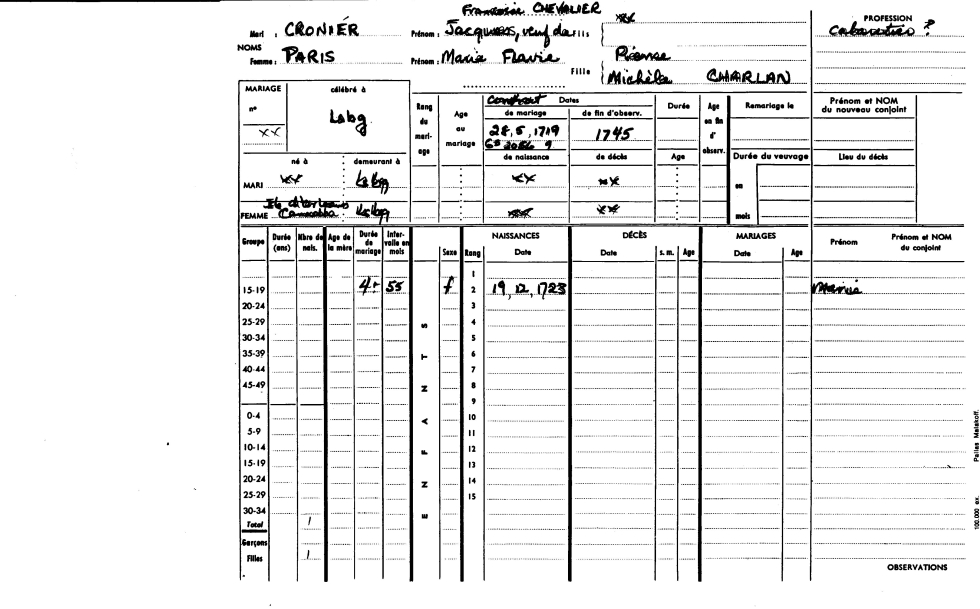 Françoise CHEVALIER
Mari : CRONIÉR Prénom : Jacques, veuf de Fils xx PROFESSION
cabaretier ?
NOMS
Femme : PARIS Prénom : Marie Flavie Fille Pierre
Michèle CHARLAN
MARIAGE célébré à
n° xx Labg
Rang du mari-age Age au mariage Contrat Dates Durée Age en fin d'observ. Remariage le Prénom et NOM du nouveau conjoint
de mariage de fin d'observ.
28, 5, 1719 1745
né à demeurant à de naissance de décès Age Durée du veuvage Lieu du décès
MARI xx Labg xx xx en
FEMME Labg xxx xx mois
Groupe Durée (ans) Nbre de nais. Age de la mère Durée de mariage Inter-valle en mois Sexe Rang NAISSANCES Date DÉCÈS Date s. m. Age MARIAGES Date Age Prénom Prénom et NOM du conjoint
1
15-19 4 55 f 2 19, 12, 1723 Marie
20-24 3
25-29 S 4
30-34 5
35-39 T 6
40-44 7
45-49 N 8
9
0-4 A 10
5-9 11
10-14 F 12
15-19 13
20-24 N 14
25-29 15
30-34 E
Total 1
Garçons
Filles 1
OBSERVATIONS
100.000 ex. Pallas Malakoff.